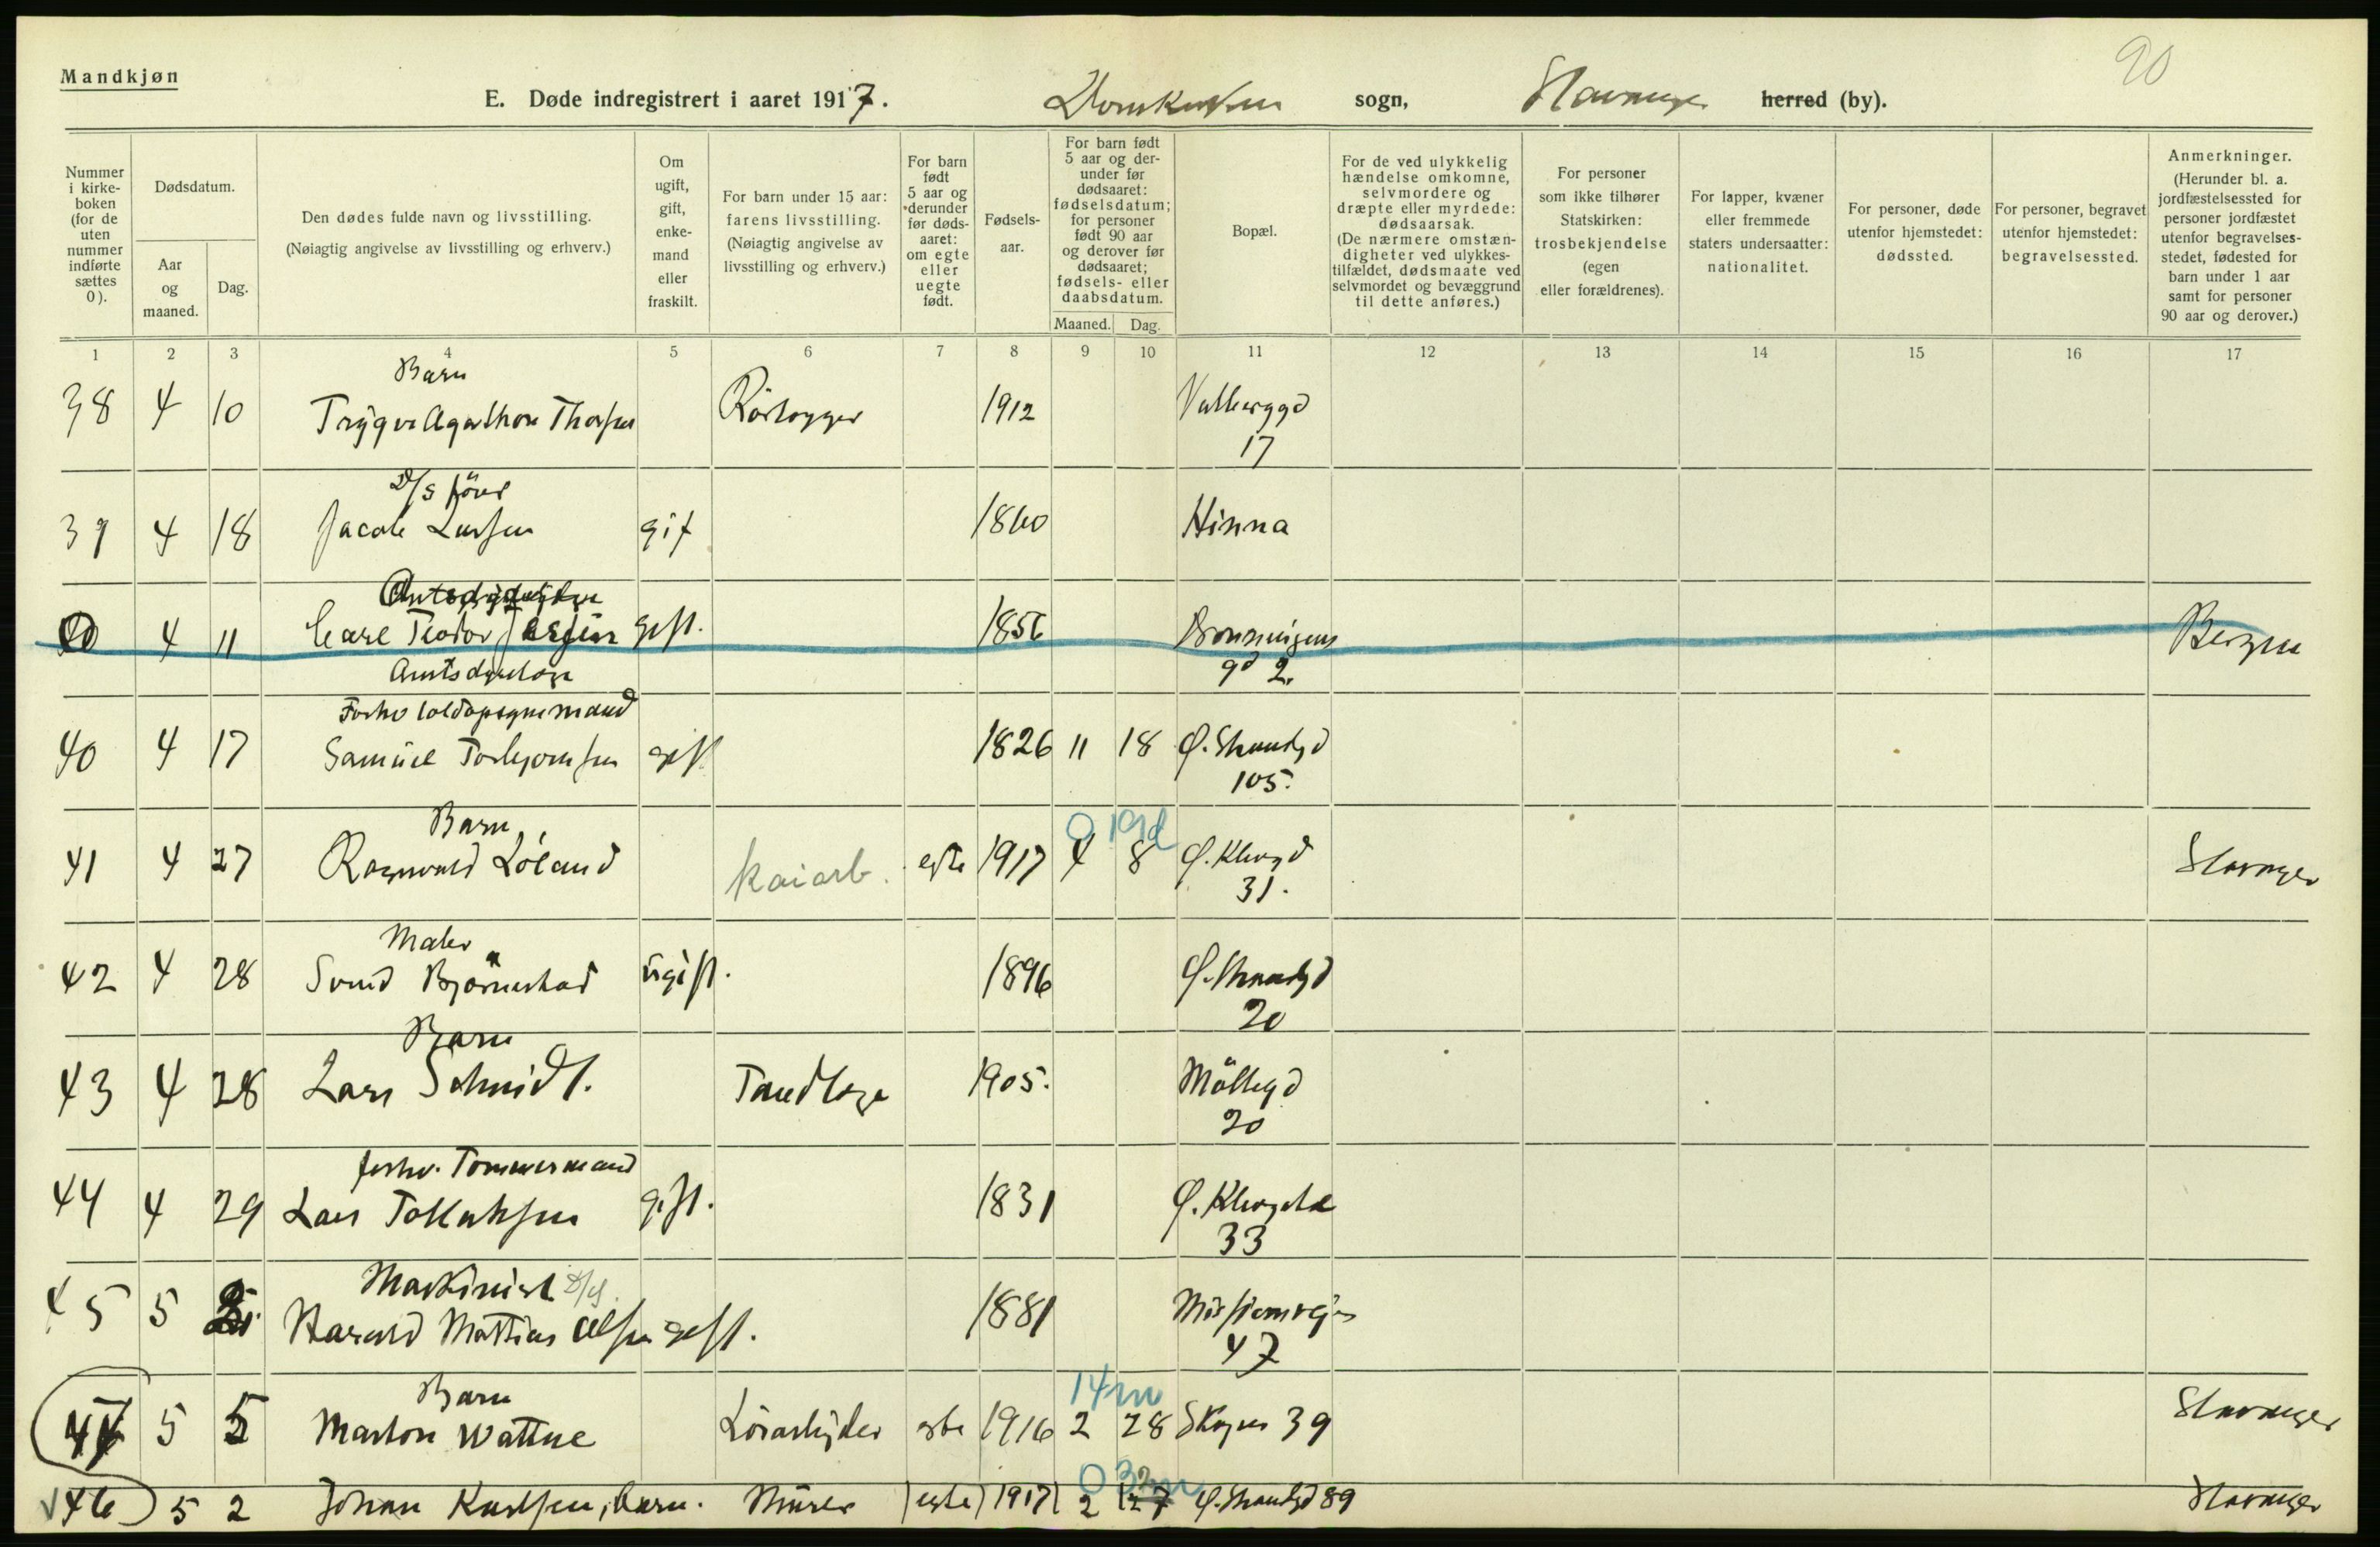 90
Mandkjøn
E. Døde indregistrert i aaret 1917. Domkirken sogn, Stavanger herred (by).
Nummer i kirke-boken (for de uten nummer indførte sættes 0).
Dødsdatum.
Aar og maaned.
Dag.
Den dødes fulde navn og livsstilling.
(Nøiagtig angivelse av livsstilling og erhverv.)
Om ugift, gift, enke-mand eller fraskilt.
For barn under 15 aar: farens livsstilling. (Nøiagtig angivelse av livsstilling og erhverv.)
For barn født 5 aar og derunder før døds-aaret: om egte eller uegte født.
Fødsels-aar.
For barn født 5 aar og der-under før dødsaaret: fødselsdatum; for personer født 90 aar og derover før dødsaaret; fødsels- eller daabsdatum.
Maaned. Dag.
Bopæl.
For de ved ulykkelig hændelse omkomne, selvmordere og dræpte eller myrdede: dødsaarsak. (De nærmere omstæn-digheter ved ulykkes-tilfældet, dødsmaate ved selvmordet og bevæggrund til dette anføres.)
For personer som ikke tilhører Statskirken: trosbekjendelse (egen eller forældrenes).
For lapper, kvæner eller fremmede staters undersaatter: nationalitet.
For personer, døde utenfor hjemstedet: dødssted.
For personer, begravet utenfor hjemstedet: begravelsessted.
Anmerkninger. (Herunder bl. a. jordfæstelsessted for personer jordfæstet utenfor begravelses-stedet, fødested for barn under 1 aar samt for personer 90 aar og derover.)
1 2 3 4 5 6 7 8 9 10 11 12 13 14 15 16 17
Barn
38 4 10 Trygve Agathon Thorsen 1912
17
D/S fører
39 4 18 Jacob Larsen gif 1860 Hinna
40 4 11 Carl Teodor gift. 1856 Dronningens Bergen
gd 2.
Forhv toldopsynsmand
40 4 17 Samuel Torbjørnsen gift 1826 11 18 Ø. Strandgd
105.
Barn 0 19d
41 4 27 Ragnvald Löland kaiarb. egte 1917 4 8 Ø. Klevgd Stavanger
31.
Maler
42 4 28 Svend Bjørnestad ugift. 1896 Ø. Strandgd
20
Barn
43 4 28 Lars Schmidt. Tandlæge 1905. Möllegd
20
forhv. Tømmermand
44 4 29 Lars Tollaksen gift. 1831 Ø. Klevgate
33
Maskinist D/S.
45 5 Harald Mattias Olsen gift. 1881 Missionsvejen
47
Barn 14m
47 5 5 Marton Wattne Lösarbejder egte 1916 2 28 Skagen 39 Stavanger
0 2m
46 5 2 Johan Karlsen, barn. Murer egte 1917 2 27 Ø. Strandgd 89 Stavanger